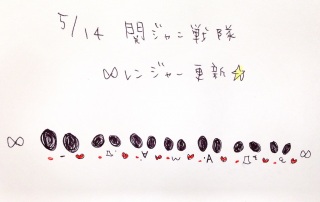 5/14 関ジャニ戦隊
∞レンジャー更新☆
∞ ∞